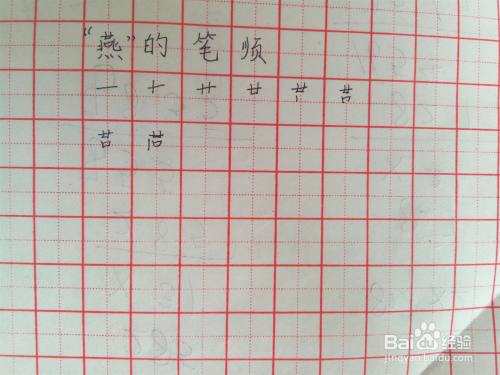 “燕”的笔顺
一 十 廾 廿
Bai 经验
jingyan.baidu.com